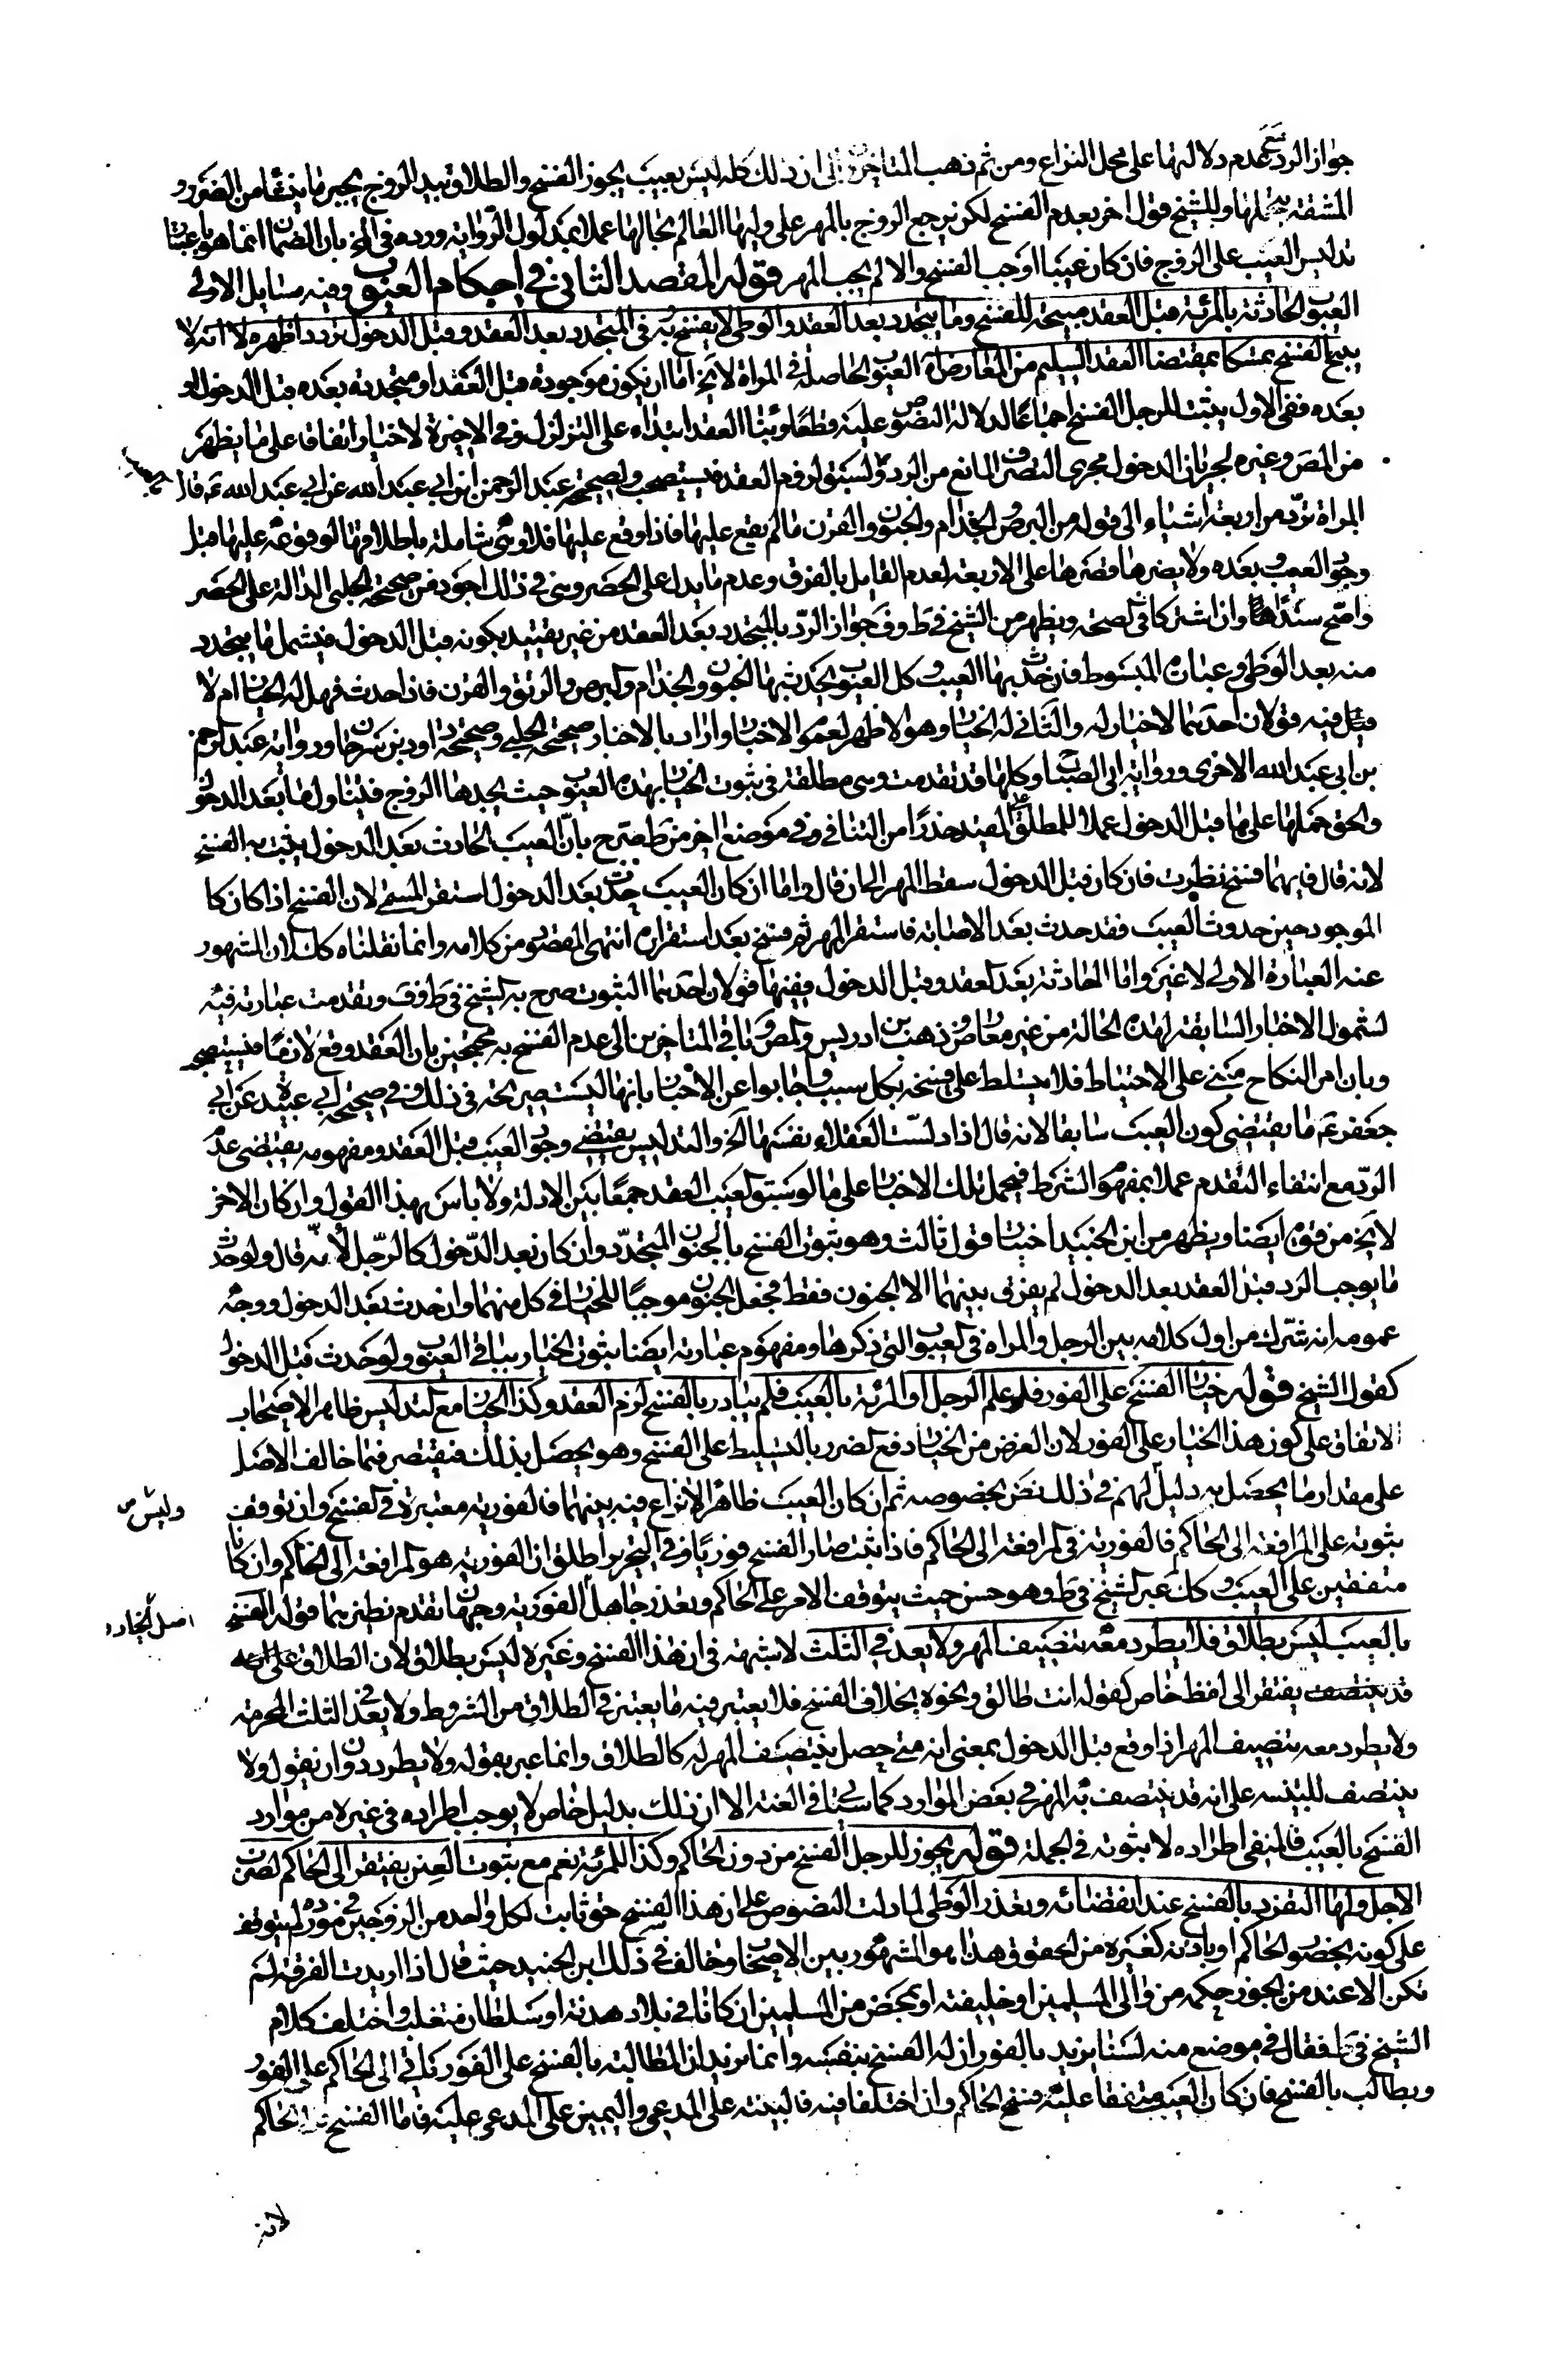 جواز الرد مع عدم دلالتها على محل النزاع ومن ثم ذهب المتاخرون الى ان ذلك كله ليس بعيب يجوز الفسخ والطلاق بيد الزوج يجبر ما يندفع من الضرر و
المشقة بتحملها وللشيخ قول اخر بعدم الفسخ لكن يرجع الزوج بالمهر على وليها العالم بحالها عملا بمدلول الرواية ورده في بان الضمان انما هو باعتبار
تدليس العيب على الزوج فان كان عيبا اوجب الفسخ والا لم يجب المهر قوله المقصد الثاني في احكام العيوب وفيه مسايل الاولى
العيوب الحادثة بالمرئة قبل العقد مبيحة للفسخ وما يتجدد بعد العقد والوطى لا يفسخ به في المتجدد بعد العقد وقبل الدخول تردد اظهره انه لا
يبيح الفسخ تمسكا بمقتضا العقد السليم من المعارض العيوب الحاصلة في المراة لا يخ اما ان تكون موجودة قبل العقد او متجددة بعده قبل الدخول او
بعده ففي الاول يثبت للرجل الفسخ اجماعا لدلالة النصوص عليه قطعا وبنا العقد ابتداء على التزلزل وفي الاخير لا خيار اتفاقا على ما يظهر
من المص وغيره لجريان الدخول مجرى التصرف المانع من الرد ولسبق لزوم العقد فيستصحب ولصحيحة عبد الرحمن ابن ابي عبد الله عن ابي عبد الله ع قال
المراة ترد من اربعة اشياء الى قوله من البرص والجذام والجنون والقرن ما لم يقع عليها فاذا وقع عليها فلا وهي شاملة باطلاقها لوقوعه عليها قبل
وجود العيب وبعده ولا يضرها قصرها على الاربعة لعدم القايل بالفرق وعدم ما يدل على الحصر وهي في ذلك اجود من صحيحة الحلبي الدالة على الحصر
واصح سندا وان اشتركا في الصحة ويظهر من الشيخ في ط وف جواز الرد بالمتجدد بعد العقد من غير تقييد بكونه قبل الدخول فيشمل ما يتجدد
منه بعد الوطى وعبارة المبسوط فان حدث بها العيب وكل العيوب يحدث بها الجنون والجذام والبرص والرتق والقرن فاذا حدث فهل له الخيار ام لا
قيل فيه قولان احدهما لا خيار له والثاني له الخيار وهو الاظهر لعموم الاخبار واراد بالاخبار صحيحة الحلبي وصحيحة داود بن سرحان ورواية عبد الرحمن
بن ابي عبد الله الاخرى ورواية ابي الصباح وكلها قد تقدمت وهي مطلقة في ثبوت الخيار بهذه العيوب حيث يجدها الزوج فيتناول ما بعد الدخول
والحق حملها على ما قبل الدخول عملا للمطلق على المقيد حذرا من التنافي وفي موضع اخر من ط صرح بان العيب الحادث بعد الدخول يثبت به الفسخ
لانه قال فايهما فسخ نظرت فان كان قبل الدخول سقط المهر الى ان قال واما ان كان العيب حدث بعد الدخول استقر المسمى لان الفسخ اذا كان كا
الموجود حين حدوث العيب فقد حدث بعد الاصابة فاستقر المهر ثم فسخ بعد استقراره انتهى المقصود من كلامه وانما نقلناه كك لان المشهور
عنه العبارة الاولى لا غير واما الحادثة بعد العقد وقبل الدخول ففيها قولان احدهما الثبوت صرح به الشيخ في ط وف وتقدمت عبارته فيه
لشمول الاخبار السابقة لهذه الحالة من غير معارض وذهب بن ادريس والمص وباقي المتاخرين الى عدم الفسخ به محتجين بان العقد وقع لازما فيستصحب
وبان امر النكاح مبني على الاحتياط فلا يتسلط على فسخه بكل سبب واجابوا عن الاخبار بانها ليست صريحة في ذلك وفي صحيحة ابي عبيدة عن ابي
جعفر ع ما يقتضى كون العيب سابقا لانه قال اذا دلست العفلاء نفسها الخ والتدليس يقتضي وجود العيب قبل العقد ومفهومه يقتضى عدم
الرد مع انتفاء التقدم عملا بمفهوم الشرط فيحمل تلك الاخبار على ما لو سبق العيب العقد جمعا بين الادلة ولا باس بهذا القول وان كان الاخر
لا يخ من قوة ايضا ويظهر من ابن الجنيد اختيار قول ثالث وهو ثبوت الفسخ بالجنون المتجدد وان كان بعد الدخول كالرجل لانه قال ولو حدث
ما يوجب الرد قبل العقد بعد الدخول لم يفرق بينهما الا الجنون فقط فجعل الجنون موجبا للخيار في كل منهما وان حدث بعد الدخول ووجه
عمومه انه شرك من اول كلامه بين الرجل والمراة في العيوب التي ذكرها ومفهوم عبارته ايضا ثبوت الخيار بباقي العيوب ولو حدث قبل الدخول
كقول الشيخ قوله خيار الفسخ على الفور فلو علم الرجل او المرئة بالعيب فلم يبادر بالفسخ لزم العقد وكذا الخيار مع التدليس ظاهر الاصحاب
الاتفاق على كون هذا الخيار على الفور لان الغرض من الخيار دفع الضرر بالتسليط على الفسخ وهو يحصل بذلك فيقتصر فيما خالف الاصل
على مقدار ما يحصل به وليس لهم في ذلك نص بخصوصه ثم ان كان العيب ظاهرا لا نزاع فيه بينهما فالفورية معتبرة في الفسخ وان توقف
ثبوته على المرافعة الى الحاكم فالفورية في المرافعة الى الحاكم فاذا ثبت صار الفسخ فوريا وفي التحرير اطلق ان الفورية هو المرافعة الى الحاكم وان كانا
متفقين على العيب وكك عبر الشيخ في ط وهو حسن حيث يتوقف الامر على الحاكم وبعذر جاهل اصل الخيار والفورية وجهان تقدم نظيرهما قوله الفسخ
بالعيب ليس بطلاق فلا يطرد معه تنصيف المهر ولا يعد في الثلث لا شبهة في ان هذا الفسخ وغيره ليس بطلاق لان الطلاق
يفتقر الى لفظ خاص كقوله انت طالق ونحوه بخلاف الفسخ فلا يعتبر فيه ما يعتبر في الطلاق من الشروط ولا يعد في الثلث المحرمة
ولا يطرد معه تنصيف المهر اذا وقع قبل الدخول بمعنى انه متى حصل ينتصف المهر له كالطلاق وانما عبر بقوله ولا يطرد دون ان يقول ولا
ينتصف للتنبيه على انه قد ينتصف به المهر في بعض الموارد كما سياتي في العنة الا ان ذلك بدليل خاص لا يوجب اطراده في غيره من موارد
الفسخ بالعيب فالمنفى اطراده لا ثبوته في الجملة قوله يجوز للرجل الفسخ من دون الحاكم وكذا للمرئة نعم مع ثبوت العنن يفتقر الى الحاكم لضرب
الاجل ولها التفرد بالفسخ عند انقضائه وتعذر الوطى لما دلت النصوص على ان هذا الفسخ حق ثابت لكل واحد من الزوجين في مورده لم يتوقف
على كونه بحضور الحاكم او باذنه كغيره من الحقوق هذا هو المشهور بين الاصحاب وخالف في ذلك ابن الجنيد حيث قال اذا اريدت الفرقة لم
تكن الا عند من يجوز حكمه من والى المسلمين او خليفته او بمحضر من المسلمين ان كانا في بلاد هدنة او سلطان متغلب واختلف كلام
الشيخ في ط فقال في موضع منه لسنا نريد بالفور ان له الفسخ بنفسه وانما نريد ان المطالبة بالفسخ على الفور ياتي الى الحاكم على الفور
ويطالب بالفسخ فان كان العيب متفقا عليه فسخ الحاكم وان اختلفا فيه فالبينة على المدعي واليمين على المدعى عليه فاما الفسخ الحاكم
لانه